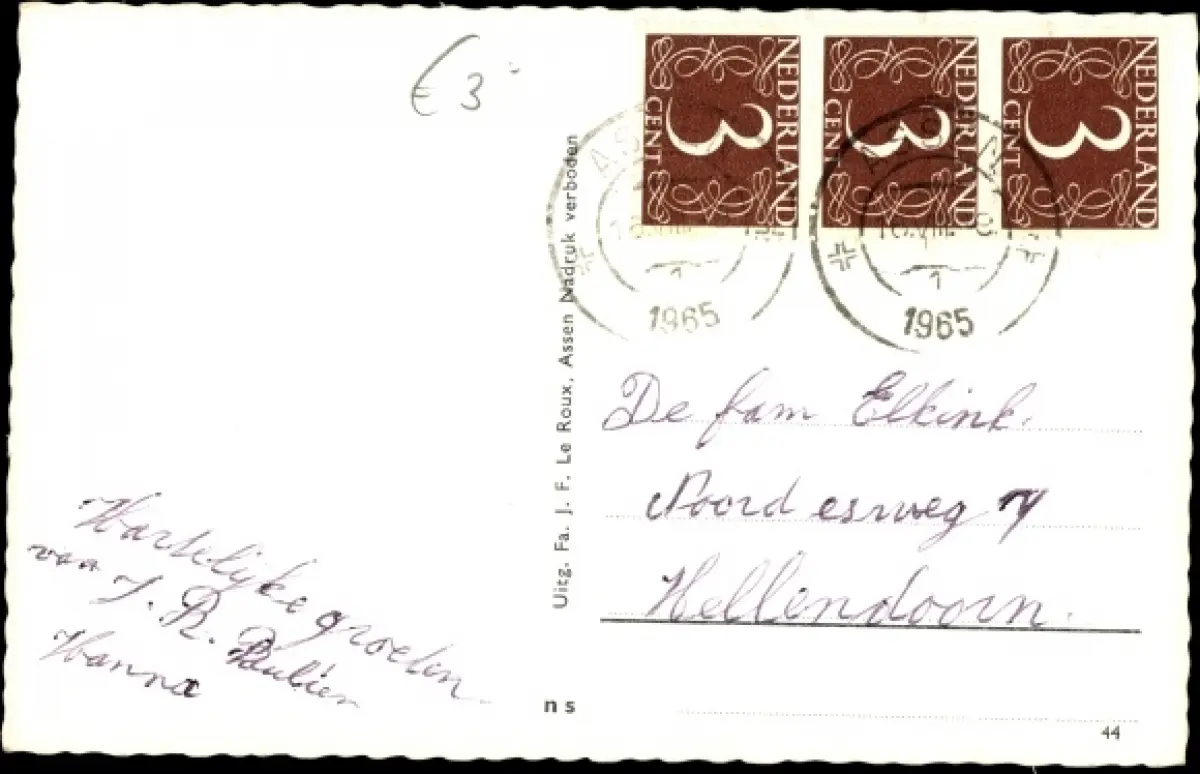 € 3-
NEDERLAND
3
CENT
NEDERLAND
3
CENT
NEDERLAND
3
CENT
ASSEN
1
1965
ASSEN
16.VIII
1
1965
Uitg. Fa. J. F. Le Roux, Assen Nadruk verboden
De fam Elkink.
Noord esweg
Hellendoorn.
Hartelijke groeten
van J. R. Paulien
Hanna
n s
44